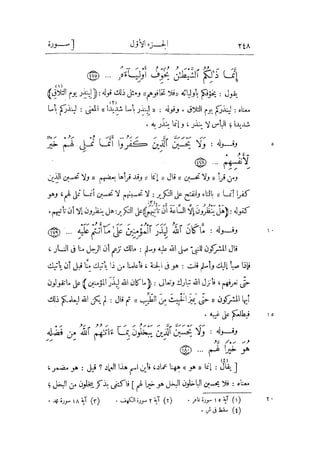 ٢٤٨ الجـــزء الأول [ ســـورة
إِنَّمَا ذَٰلِكُمُ الشَّيْطَٰنُ يُخَوِّفُ أَوْلِيَآءَهُۥ ... ﴿١٧٥﴾
يقول : يخوّفكم بأوليائه «فلا تخافوهم» ومثل ذلك قوله: ﴿لِيُنذِرَ يَوْمَ التَّلاقِ﴾
معناه : لينذركم يوم التلاق . وقوله : «لِيُنذِرَ بَأْسا شَدِيدًا» المعنى : لينذركم بأسا
شديدا ؛ البأس لا ينذر ، وإنما ينذر به .
٥ وقـــوله : وَلَا يَحْسَبَنَّ الَّذِينَ كَفَرُوٓا أَنَّمَا نُمْلِى لَهُمْ خَيْرٌ
لِّأَنفُسِهِمْ ... ﴿١٧٨﴾
ومن قرأ « ولا تحسبن » قال « إنما » وقد قرأها بعضهم « ولا تحسبن الذين
كفروا أنما » بالتاء والفتح على التكرير : لا تحسبنهم لا تحسبن أنما نملى لهم، وهو
كقوله : ﴿هَلْ يَنْظُرُونَ إِلَّا السَّاعَةَ أَنْ تَأْتِيَهُمْ﴾ على التكرير: هل ينظرون إلا أن تأتيهم.
١٠ وقـــوله : مَا كَانَ اللَّهُ لِيَذَرَ الْمُؤْمِنِينَ عَلَىٰ مَآ أَنتُمْ عَلَيْهِ ... ﴿١٧٩﴾
قال المشركون للنبىّ صلى الله عليه وسلم : مالك تزعم أن الرجل منا فى النـار ،
فإذا صبأ إليك وأسلم قلت : هو فى الجنة ، فأعلمنا من ذا يأتيك منّا قبل أن يأتيك
حتى نعرفهم ، فأنزل الله تبارك وتعالى : ﴿ما كان الله لِيذر المؤمنين﴾ على ما تقولون
أيها المشركون « حتى يَمِيزَ الخَبِيثَ مِنَ الطَّيِّبِ » ثم قال : لم يكن الله ليعلمكم ذلك
١٥ فيطلعكم على غيبه .
وقـــوله : وَلَا يَحْسَبَنَّ الَّذِينَ يَبْخَلُونَ بِمَآ ءَاتَىٰهُمُ اللَّهُ مِن فَضْلِهِۦ
هُوَ خَيْرًا لَّهُم ... ﴿١٨٠﴾
[ يقال : إنما « هو » ههنا عماد، فأين اسم هذا العماد ؟ قيل : هو مضمر ،
معناه : فلا يحسبن الباخلون البخل هو خيرا لهم ] فاكتفى بذكر يبخلون من البخل ؛
٢٠ (١) آية ١٥ سورة غافر . (٢) آية ٢ سورة الكهف . (٣) آية ١٨ سورة محمد .
(٤) سقط فى ش .